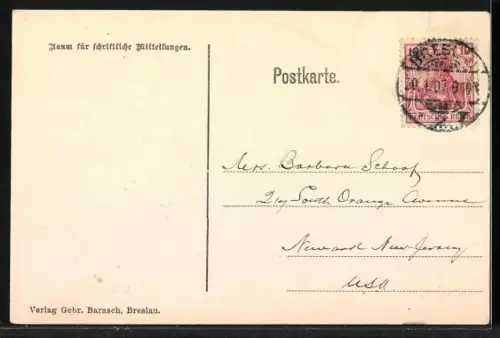 Raum für schriftliche Mitteilungen.
Postkarte.
BRESLAU
07
DEUTSCHES REICH
Mrs. Barbara Schaaf
South Orange Avenue
Newark New-Jersey
USA
Verlag Gebr. Barasch, Breslau.